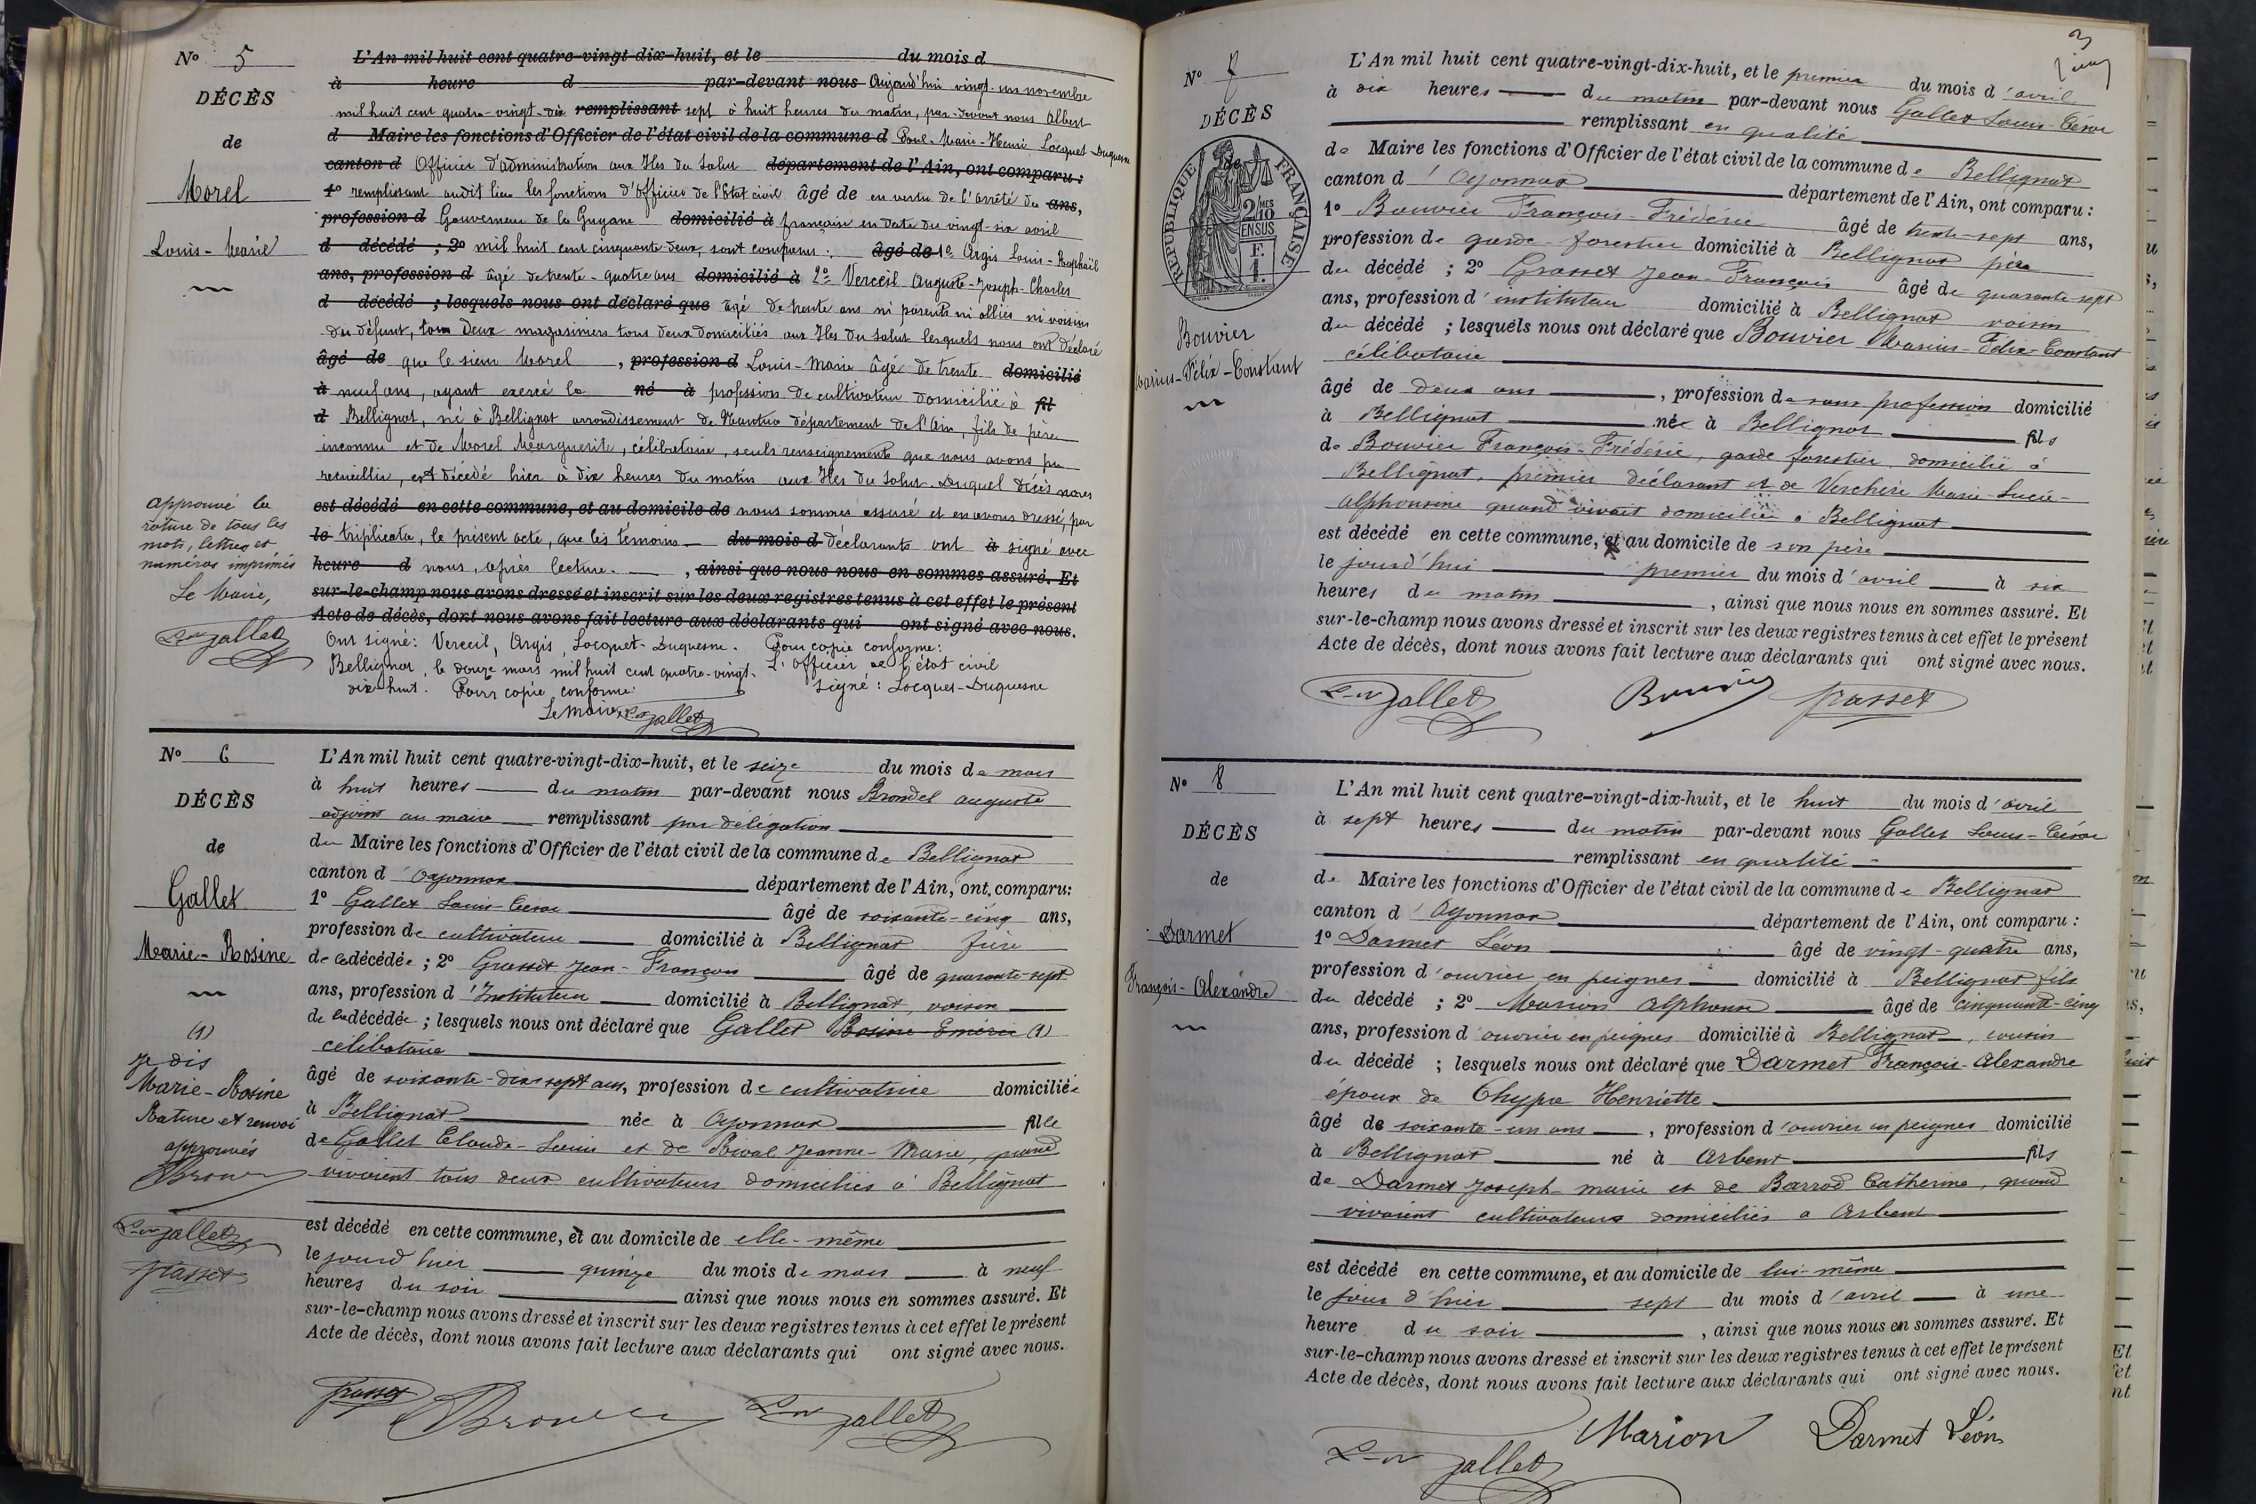 N° 5
DÉCÈS
de
Morel
Louis-Marie
approuvé la
rature de tous les
mots, lettres et
numéros imprimés
Le Maire,
Gallet
L'An mil huit cent quatre-vingt-dix-huit, et le du mois d
à heure d par-devant nous Aujourd'hui vingt-un novembre
mil huit cent quatre-vingt-dix remplissant sept à huit heures du matin, par-devant nous Albert
d Maire les fonctions d'Officier de l'état civil de la commune d Paul-Marie-Henri Locquet-Duquesne
canton d Officier d'administration aux Iles du Salut département de l'Ain, ont comparu :
1° remplissant audit lieu les fonctions d'officier de l'Etat civil âgé de en vertu de l'arrêté du ans,
profession d Gouverneur de la Guyane domicilié à française en date du vingt-six avril
d décédé ; 2° mil huit cent cinquante deux, sont comparus : âgé de 1° Argis Louis-Raphaël
ans, profession d âgé de trente-quatre ans domicilié à 2° Verceil Auguste-Joseph-Charles
d décédé ; lesquels nous ont déclaré que âgé de trente ans ni parents ni alliés ni voisins
du défunt, tous deux magasiniers tous deux domiciliés aux Iles du Salut lesquels nous ont déclaré
âgé de que le sieur Morel , profession d Louis-Marie âgé de trente domicilié
à neuf ans, ayant exercé la né à profession de cultivateur domicilié à fil
d Bellignat, né à Bellignat arrondissement de Nantua département de l'Ain, fils de père
inconnu et de Morel Marguerite, célibataire, seuls renseignements que nous avons pu
recueillir, est décédé hier à dix heures du matin aux Iles du Salut. Duquel décès nous
est décédé en cette commune, et au domicile de nous sommes assuré et en avons dressé, par
le triplicata, le présent acte, que les témoins du mois d déclarants ont à signé avec
heure d nous, après lecture. , ainsi que nous nous en sommes assuré. Et
sur-le-champ nous avons dressé et inscrit sur les deux registres tenus à cet effet le présent
Acte de décès, dont nous avons fait lecture aux déclarants qui ont signé avec nous.
Ont signé : Verceil, Argis, Locquet-Duquesne. Pour copie conforme :
Bellignat, le douze mars mil huit cent quatre-vingt- L'officier de l'état civil
dix-huit. Pour copie conforme : signé : Locquet-Duquesne
Le Maire, Gallet
N° 6
DÉCÈS
de
Gallet
Marie-Rosine
(1)
Je dis
Marie-Rosine
Rature et renvoi
approuvés
Gallet
Grasset
L'An mil huit cent quatre-vingt-dix-huit, et le seize du mois de mars
à huit heures du matin par-devant nous Brondel auguste
adjoint au maire remplissant par délégation
du Maire les fonctions d'Officier de l'état civil de la commune de Bellignat
canton d'Oyonnax département de l'Ain, ont comparu :
1° Gallet Louis-César âgé de soixante-cinq ans,
profession de cultivateur domicilié à Bellignat frère
de la décédée ; 2° Grasset Jean-François âgé de quarante-sept
ans, profession d'Instituteur domicilié à Bellignat, voisin
de la décédée ; lesquels nous ont déclaré que Gallet Rosine (1)
célibataire
âgé de soixante-dix-sept ans, profession de cultivatrice domiciliée
à Bellignat née à Oyonnax fille
de Gallet Claude-Louis et de Rival Jeanne-Marie, quand
vivaient tous deux cultivateurs domiciliés à Bellignat
est décédé en cette commune, et au domicile de elle-même
le jourd'hier quinze du mois de mars à neuf
heures du soir ainsi que nous nous en sommes assuré. Et
sur-le-champ nous avons dressé et inscrit sur les deux registres tenus à cet effet le présent
Acte de décès, dont nous avons fait lecture aux déclarants qui ont signé avec nous.
Grasset Gallet
3
N° 7
DÉCÈS
de
RÉPUBLIQUE FRANÇAISE
2/10MES
EN SUS
F.
1.
Bouvier
Marius-Félix-Constant
L'An mil huit cent quatre-vingt-dix-huit, et le premier du mois d'avril
à dix heures du matin par-devant nous Gallet Louis-César
remplissant en qualité
de Maire les fonctions d'Officier de l'état civil de la commune de Bellignat
canton d'Oyonnax département de l'Ain, ont comparu :
1° Bouvier François-Frédéric âgé de trente-sept ans,
profession de garde-forestier domicilié à Bellignat père
du décédé ; 2° Grasset Jean-François âgé de quarante-sept
ans, profession d'instituteur domicilié à Bellignat voisin
du décédé ; lesquels nous ont déclaré que Bouvier Marius-Félix-Constant
célibataire
âgé de deux ans , profession de sans profession domicilié
à Bellignat né à Bellignat fils
de Bouvier François-Frédéric, garde forestier, domicilié à
Bellignat, premier déclarant et de Verchère Marie-Lucie-
alphonsine quand vivait domiciliée à Bellignat
est décédé en cette commune, et au domicile de son père
le jourd'hui premier du mois d'avril à six
heures du matin , ainsi que nous nous en sommes assuré. Et
sur-le-champ nous avons dressé et inscrit sur les deux registres tenus à cet effet le présent
Acte de décès, dont nous avons fait lecture aux déclarants qui ont signé avec nous.
Gallet Bouvier Grasset
N° 8
DÉCÈS
de
Darmet
François-Alexandre
L'An mil huit cent quatre-vingt-dix-huit, et le huit du mois d'avril
à sept heures du matin par-devant nous Gallet Louis-César
remplissant en qualité
de Maire les fonctions d'Officier de l'état civil de la commune de Bellignat
canton d'Oyonnax département de l'Ain, ont comparu :
1° Darmet Léon âgé de vingt-quatre ans,
profession d'ouvrier en peignes domicilié à Bellignat fils
du décédé ; 2° Marion Alphonse âgé de cinquante-cinq
ans, profession d'ouvrier en peignes domicilié à Bellignat, cousin
du décédé ; lesquels nous ont déclaré que Darmet François-Alexandre
époux de Henriette
âgé de soixante-un ans , profession d'ouvrier en peignes domicilié
à Bellignat né à Arbent fils
de Darmet Joseph-marie et de Barrod Catherine, quand
vivaient cultivateurs domiciliés à Arbent
est décédé en cette commune, et au domicile de lui-même
le jour d'hier sept du mois d'avril à une
heure du soir , ainsi que nous nous en sommes assuré. Et
sur-le-champ nous avons dressé et inscrit sur les deux registres tenus à cet effet le présent
Acte de décès, dont nous avons fait lecture aux déclarants qui ont signé avec nous.
Marion Darmet Léon
Gallet